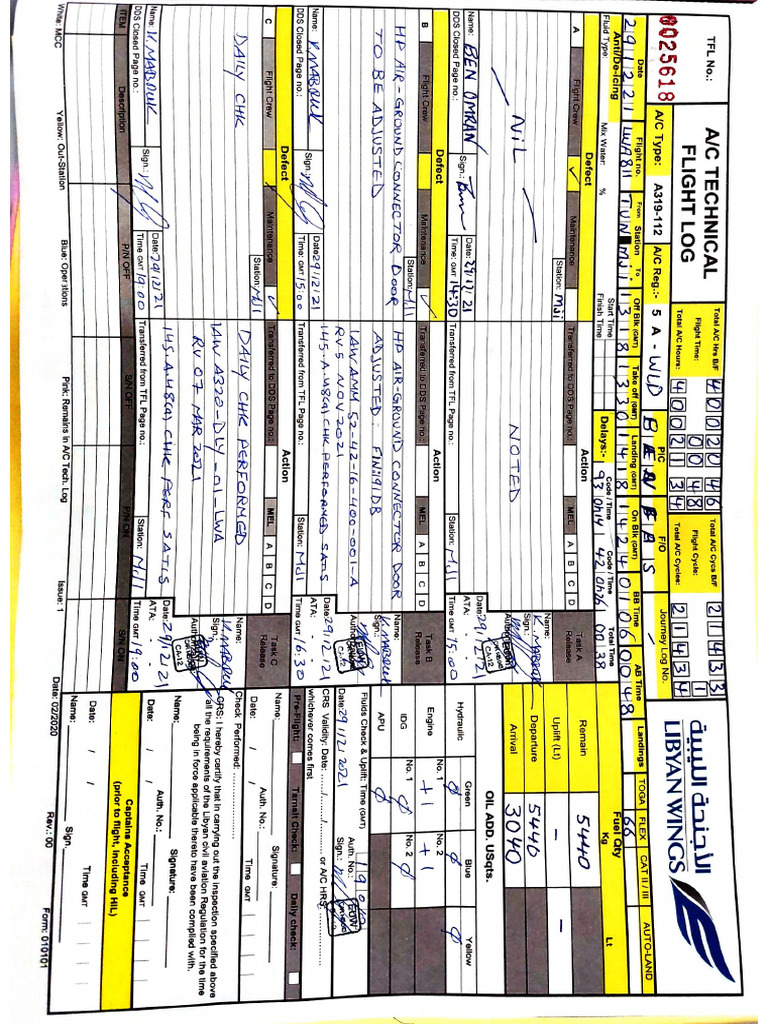 TFL No.:
0025618
A/C TECHNICAL
FLIGHT LOG
Total A/C Hrs B/F 40020 46
Flight Time: 00 48
Total A/C Hours: 40021 34
Total A/C Cycs B/F 21433
Flight Cycle: 1
Total A/C Cycles: 21434
الأجنحة الليبية
LIBYAN WINGS
A/C Type: A319-112 A/C Reg:- 5 A - WLD
P/C F/O Journey Log No.
Date Flight no. From Station To Off Blk (GMT) Take off (GMT) Landing (GMT) On Blk (GMT) BB Time AB Time Landings TOGA FLEX CAT II / III AUTO-LAND
29 12 21 LWA811 TUN MJI 1318 1330 1418 1424 0106 0048 66
Anti/De-Icing
Fluid Type: Mix Water: % Start Time Finish Time
Delays:- Code / Time Code / Time Total Time
93 0h14 42 0h26 00 38
Fuel Qty Kg Lt
Remain 5440
Uplift (Lt) – –
Departure 5440
Arrival 3040
Defect Action
A Flight Crew ✓ Maintenance Station: MJI
Transferred to DDS Page no.: MEL A B C D Task A Release
– NIL – NOTED
Name: K. MABROUK
Name: BEN OMRAN Sign.: Date: 29/12/21
DDS Closed Page no.: Time GMT 14:30
Transferred from TFL Page no.: Station: MJI Date: 29/12/21 Time GMT 15:00
Defect Action
B Flight Crew Maintenance ✓ Station: MJI
Transferred to DDS Page no.: MEL A B C D Task B Release
HP AIR-GROUND CONNECTOR DOOR
TO BE ADJUSTED
HP AIR-GROUND CONNECTOR DOOR
ADJUSTED. FIN:191DB
IAW AMM 52-42-16-400-001-A
RV-5 NOV 2021
145.A.48(a) CHK PERFORMED SATIS
Name: K. MABROUK
Sign.:
Name: K. MABROUK Sign.: Date: 29/12/21
DDS Closed Page no.: Time: GMT 15:00
Transferred from TFL Page no.: Station: MJI ATA: Date: 29/12/21 Time GMT 16:30
Defect Action
C Flight Crew Maintenance ✓ Station: MJI
Transferred to DDS Page no.: MEL A B C D Task C Release
DAILY CHK
DAILY CHK PERFORMED
IAW A320-DLY-01-LWA
RV 07 MAR 2021
145.A.48(a) CHK PERF SATIS
Name: K. MABROUK
Sign.:
Name: K. MABROUK Sign.: Date: 29/12/21
DDS Closed Page no.: Time GMT 19:00
Transferred from TFL Page no.: Station: MJI ATA: Date: 29/12/21 Time GMT 19:00
ITEM Description P/N OFF S/N OFF P/N ON S/N ON
OIL ADD. USqts.
Hydraulic Green Blue Yellow
Ø Ø Ø
Engine No. 1 +1 No. 2 +1
IDG No. 1 Ø No. 2 Ø
APU Ø
Fluids Check & Uplift: Time (GMT) 1900
Date: 29/12/2021 Auth. No.: Sign.:
CRS Validity: Date: / / or A/C HRS:
whichever comes first
Pre-Flight: Tarnsit Check: Daily check:
Check Performed:
Date: / / Auth. No.: Time GMT
Name: Signature:
CRS: I hereby certify that in carrying out the inspection specified above
all the requirements of the Libyan civil aviation Regulation for the time
being in force applicable thereto have been complied with.
Name: Signature:
Date: / / Auth. No.: Time GMT
Captains Acceptance
(prior to flight, including HIL)
Date: / / Time GMT
Name: Sign.
White: MCC Yellow: Out-Station Blue: Operations Pink: Remains in A/C Tech. Log Issue: 1 Date: 02/2020 Rev.: 00 Form: 010101